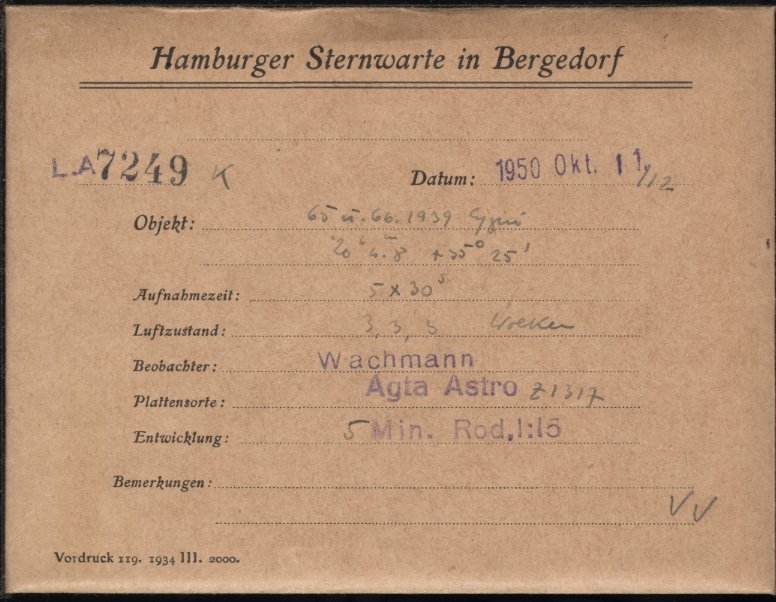 Hamburger Sternwarte in Bergedorf
L.A 7249 K
Datum: 1950 Okt. 11/12
Objekt: 65 u. 66.1939 Cygni
20h 4m.8 +35° 25'
Aufnahmezeit: 5 x 30s
Luftzustand: 3, 3, 3 Wolken
Beobachter: Wachmann
Plattensorte: Agfa Astro Z1317
Entwicklung: 5 Min. Rod. 1:15
Bemerkungen:
VV
Vordruck 119. 1934 III. 2000.